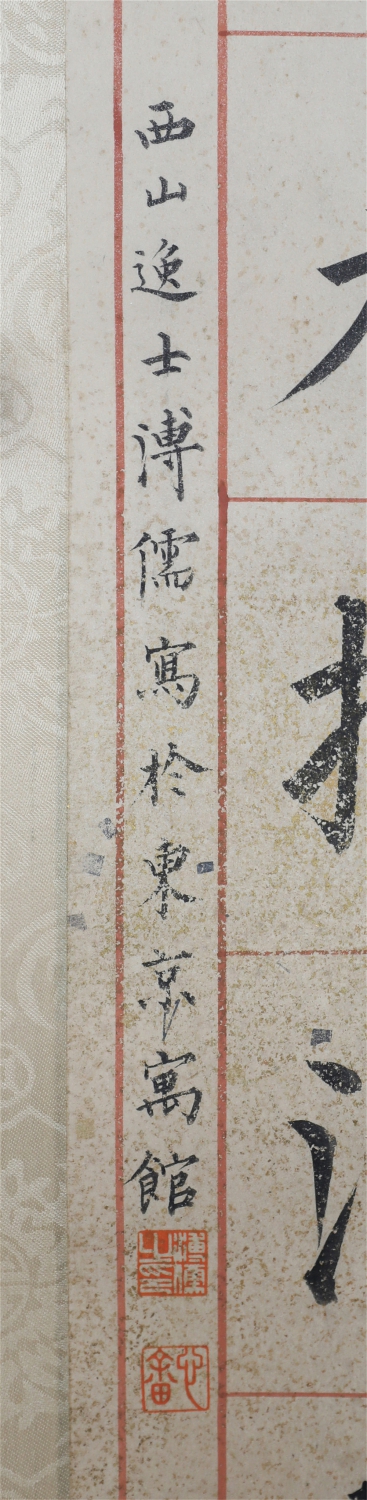 西山逸士溥儒寫於東京寓館
溥儒之印
心畬